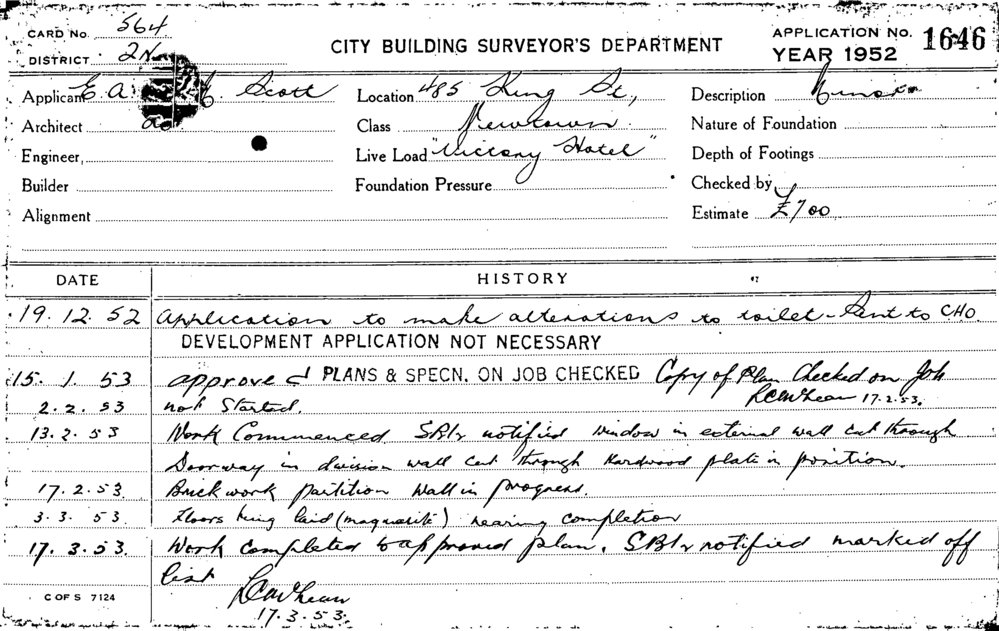 CARD No. 564
DISTRICT 2N
CITY BUILDING SURVEYOR'S DEPARTMENT
APPLICATION No. 1646
YEAR 1952
Applicant E. A. Scott
Location 485 King St.,
Description
Architect do
Class Newtown
Nature of Foundation
Engineer,
Live Load "Victory Hotel"
Depth of Footings
Builder
Foundation Pressure
Checked by
Alignment
Estimate £700
DATE HISTORY
19. 12. 52 Application to make alterations to toilet - Sent to CHO.
DEVELOPMENT APPLICATION NOT NECESSARY
15. 1. 53 approved PLANS & SPECN. ON JOB CHECKED Copy of Plan Checked on Job
2. 2. 53 not Started. 17.2.53.
13. 2. 53 Work Commenced notified window in external wall cut through
Doorway in division wall cut through hardwood plate in position.
17. 2. 53 Brickwork partition wall in progress.
3. 3. 53 Floors being laid nearing completion
17. 3. 53. Work completed to approved plan. notified marked off
list
17. 3. 53.
C OF S 7124